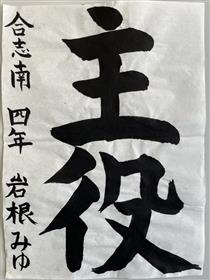 主役
合志南 四年 岩根みゆ